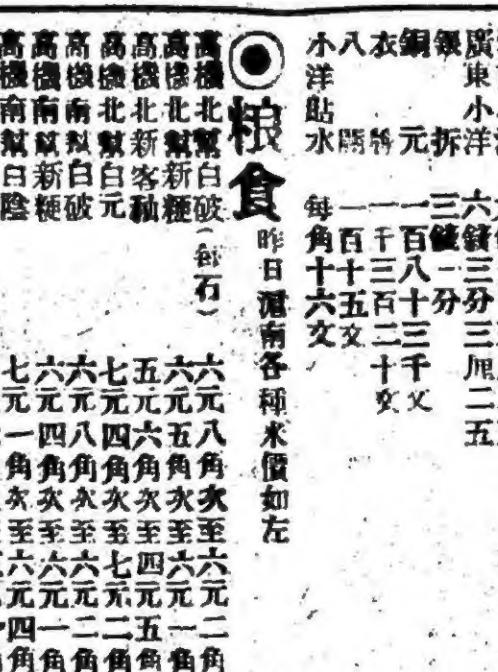 廣東小洋 六錢三分三厘二五
銀拆 三錢一分
銅元 一百八十三千文
衣牌 一千三百二十文
八開 一百十五文
小洋貼水 每角十六文
◉粮食 昨日滬南各種米價如左
高機北幫白破（每石） 六元八角次至六元二角
高機北幫新粳 六元五角次至六元一角
高機北新客秈 五元六角次至四元五角
高機北幫白元 七元四角次至七元二角
高機南幫白破 六元八角次至六元二角
高機南幫新粳 六元四角次至六元一角
高機南幫白陰 七元一角次至元四角